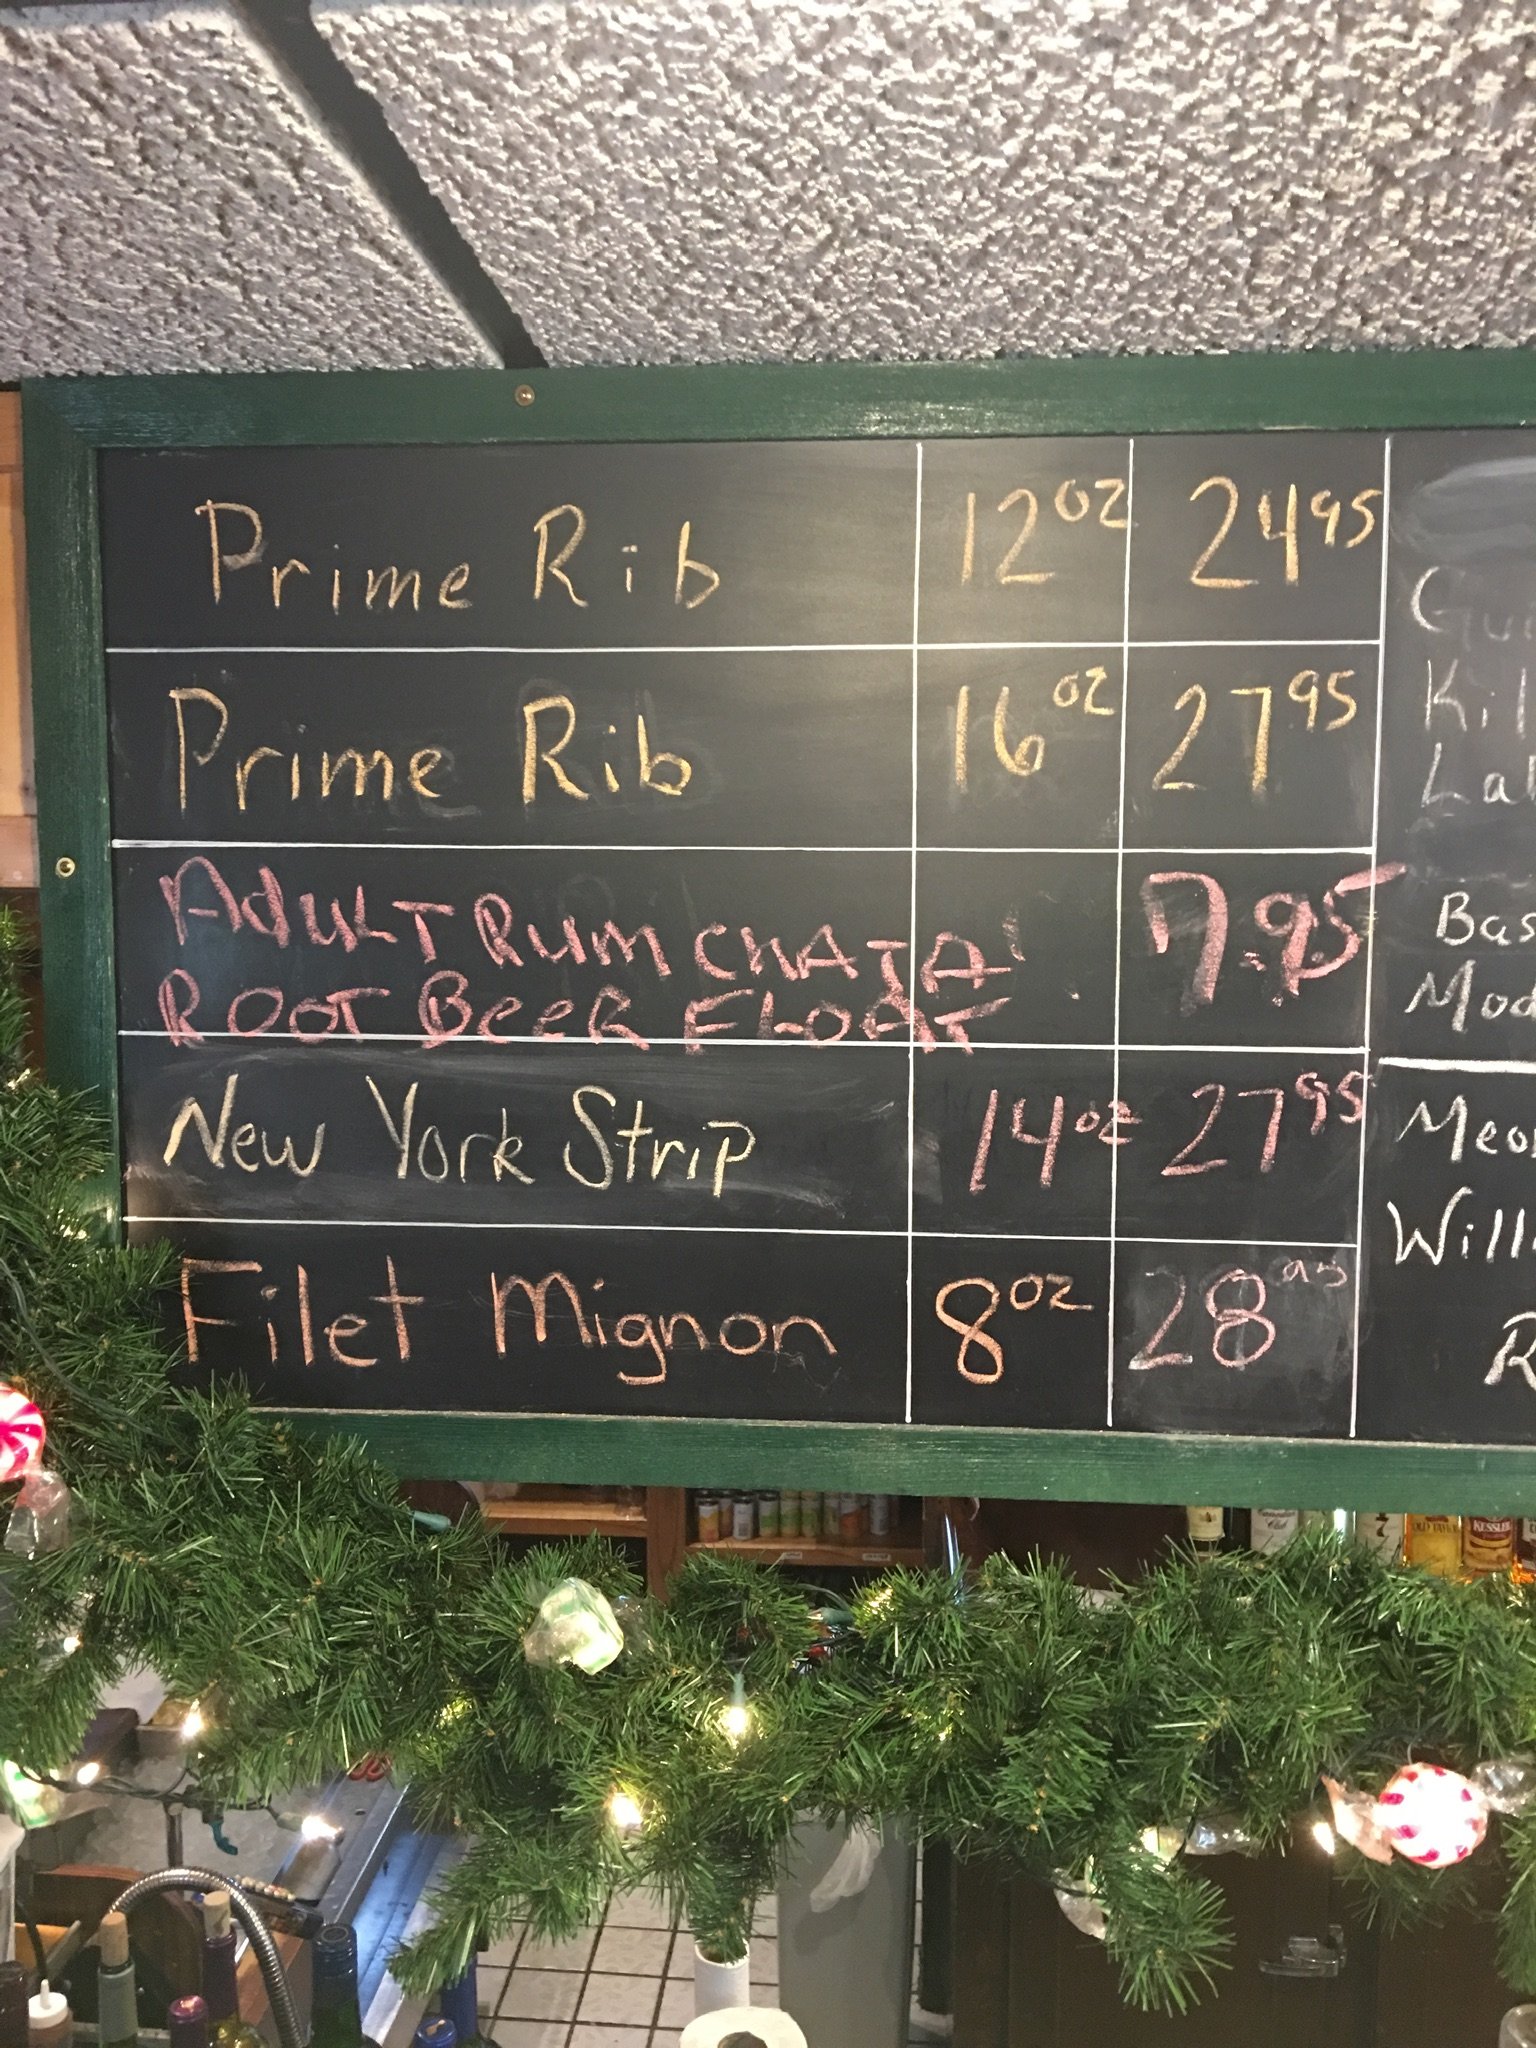 Prime Rib 12oz 2495
Prime Rib 16oz 2795
ADULT RUM CHATA 7.95
ROOT BEER FLOAT
New York Strip 14oz 2795
Filet Mignon 8oz 2895
Kil
Bas
Meo
Willi
R
OLD TAYLOR
KESSLER
7